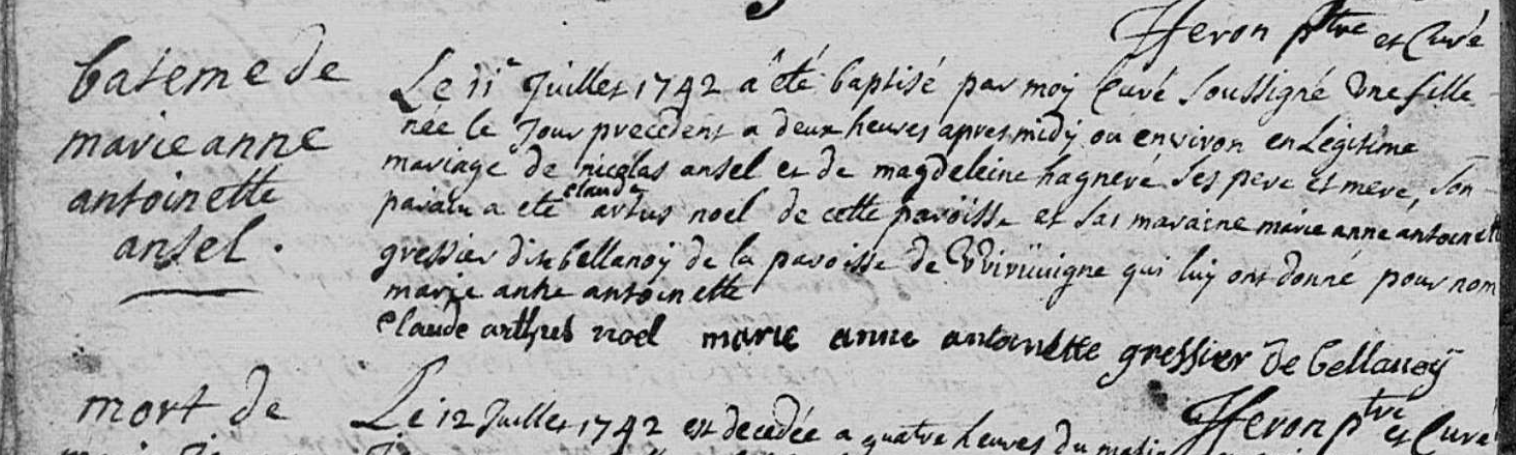 Heron ptre et Curé
bateme de
marie anne
antoinette
ansel.
Le 11e Juillet 1742 a êté baptisé par moy Curé soussigné une fille
née le jour precedent a deux heures apres midy ou environ en legitime
mariage de nicolas ansel et de magdeleine hagneré ses pere et mere, son
parain a eté claude artus noel de cette paroisse et sa maraine marie anne antoinette
gressier dite bellanoy de la paroisse de Wirwigne qui luy ont donné pour nom
marie anne antoinette
Claude arthus noel marie anne antoinette gressier de bellanoy
Heron ptre et Curé
mort de
Le 12 Juillet 1742 est decedée a quatre heures du matin